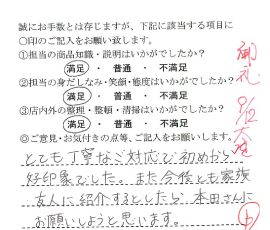 誠にお手数とは存じますが、下記に該当する項目に
〇印のご記入をお願い致します。
①担当の商品知識・説明はいかがでしたか？
満足 ・ 普通 ・ 不満足
②担当の身だしなみ・笑顔・態度はいかがでしたか？
満足 ・ 普通 ・ 不満足
③店内外の整理・整頓・清掃はいかがでしたか？
満足 ・ 普通 ・ 不満足
◎ご意見・お気付きの点等、ご記入をお願いします。
とても丁寧なご対応で初めから
好印象でした。また今後とも家族
友人に紹介するとしたら、本田さんに
お願いしようと思います。
御礼